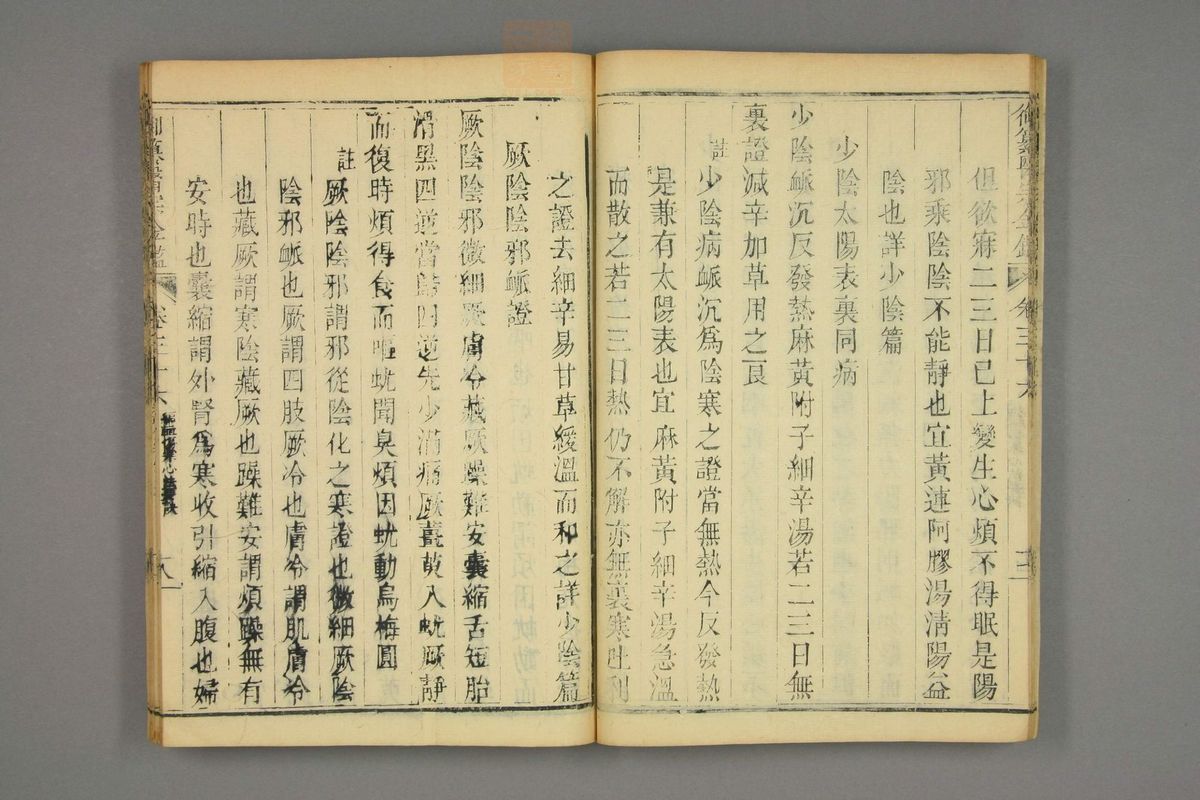 但欲寐二三日已上變生心煩不得眠是陽
邪乘陰陰不能靜也宜黃連阿膠湯淸陽益
陰也詳少陰篇
少陰太陽表裏同病
少陰脈沉反發熱麻黃附子細辛湯若二三日無
裏證減辛加草用之良
註少陰病脈沉爲陰寒之證當無熱今反發熱
是兼有太陽表也宜麻黃附子細辛湯急溫
而散之若二三日熱仍不解亦無裏寒吐利
之證去細辛易甘草緩溫而和之詳少陰篇
厥陰陰邪脈證
厥陰陰邪微細厥膚冷藏厥躁難安囊縮舌短胎
滑黑四逆當歸四逆先少滿痛厥
入蚘厥靜
而復時煩得食而嘔蚘聞臭煩因蚘動烏梅圓
註厥陰陰邪謂邪從陰化之寒證也微細厥陰
陰邪脈也厥謂四肢厥冷也膚冷謂肌膚冷
也藏厥謂寒陰藏厥也躁難安謂煩躁無有
安時也囊縮謂外腎爲寒收引縮入腹也婦